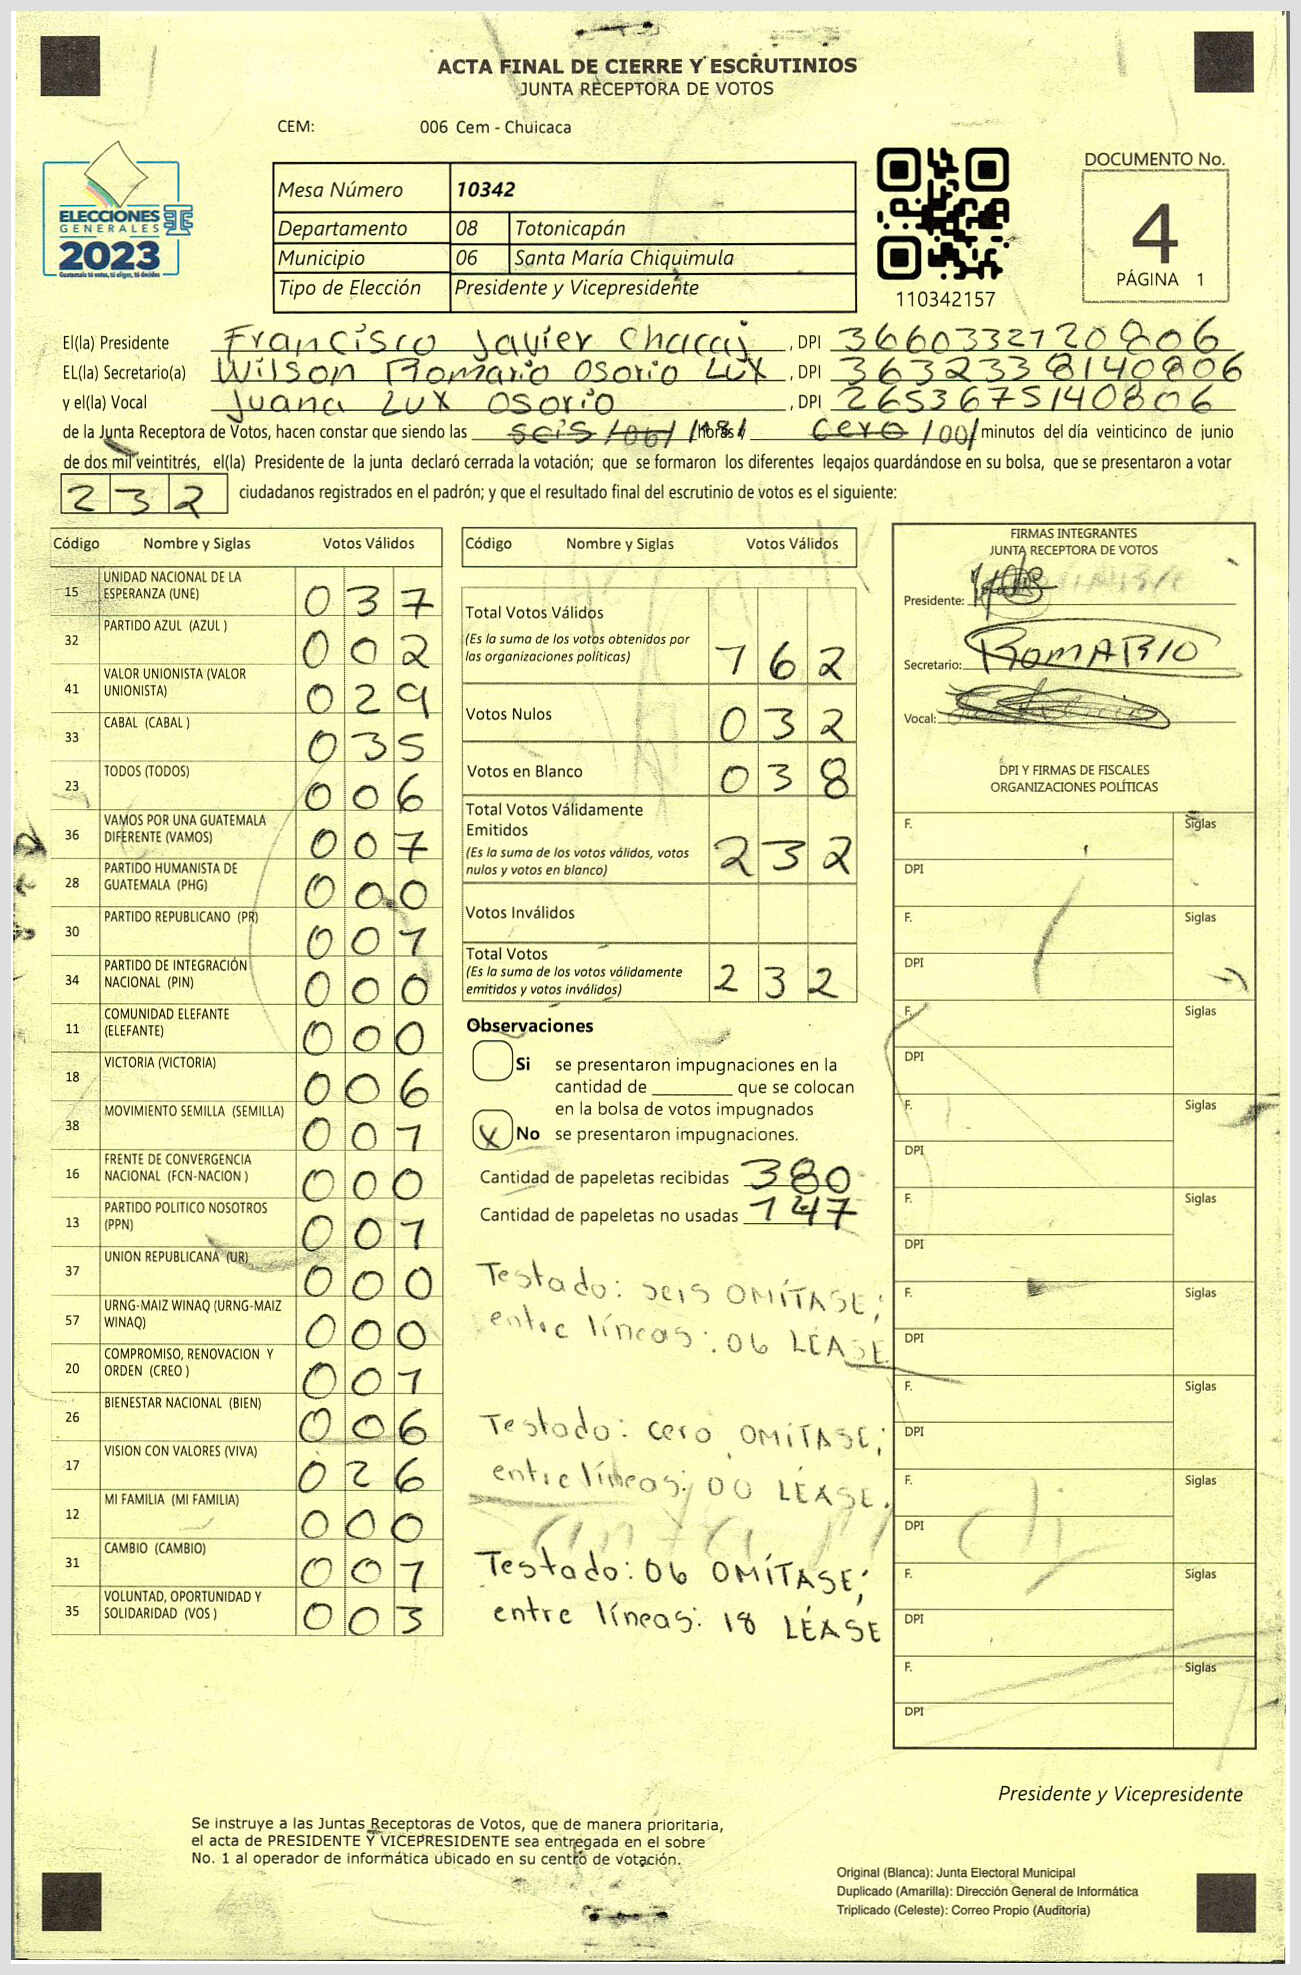 ACTA FINAL DE CIERRE Y ESCRUTINIOS
JUNTA RECEPTORA DE VOTOS
CEM: 006 Cem - Chuicaca
ELECCIONES
GENERALES
2023
Guatemala tú votas, tú eliges, tú decides
Mesa Número 10342
Departamento 08 Totonicapán
Municipio 06 Santa María Chiquimula
Tipo de Elección Presidente y Vicepresidente
110342157
DOCUMENTO No.
4
PÁGINA 1
El(la) Presidente Francisco Javier Chacaj, DPI 3660332720806
EL(la) Secretario(a) Wilson Romario Osorio Lux, DPI 3632338140806
y el(la) Vocal Juana Lux Osorio, DPI 2653675140806
de la Junta Receptora de Votos, hacen constar que siendo las seis /06/ /18/ horas cero /00/ minutos del día veinticinco de junio
de dos mil veintitrés, el(la) Presidente de la junta declaró cerrada la votación; que se formaron los diferentes legajos guardándose en su bolsa, que se presentaron a votar
232 ciudadanos registrados en el padrón; y que el resultado final del escrutinio de votos es el siguiente:
Código Nombre y Siglas Votos Válidos
15 UNIDAD NACIONAL DE LA ESPERANZA (UNE) 037
32 PARTIDO AZUL (AZUL ) 002
41 VALOR UNIONISTA (VALOR UNIONISTA) 029
33 CABAL (CABAL ) 035
23 TODOS (TODOS) 006
36 VAMOS POR UNA GUATEMALA DIFERENTE (VAMOS) 007
28 PARTIDO HUMANISTA DE GUATEMALA (PHG) 000
30 PARTIDO REPUBLICANO (PR) 001
34 PARTIDO DE INTEGRACIÓN NACIONAL (PIN) 000
11 COMUNIDAD ELEFANTE (ELEFANTE) 000
18 VICTORIA (VICTORIA) 006
38 MOVIMIENTO SEMILLA (SEMILLA) 001
16 FRENTE DE CONVERGENCIA NACIONAL (FCN-NACION ) 000
13 PARTIDO POLITICO NOSOTROS (PPN) 001
37 UNION REPUBLICANA (UR) 000
57 URNG-MAIZ WINAQ (URNG-MAIZ WINAQ) 000
20 COMPROMISO, RENOVACION Y ORDEN (CREO ) 001
26 BIENESTAR NACIONAL (BIEN) 006
17 VISION CON VALORES (VIVA) 026
12 MI FAMILIA (MI FAMILIA) 000
31 CAMBIO (CAMBIO) 001
35 VOLUNTAD, OPORTUNIDAD Y SOLIDARIDAD (VOS ) 003
Código Nombre y Siglas Votos Válidos
Total Votos Válidos
(Es la suma de los votos obtenidos por
las organizaciones políticas) 162
Votos Nulos 032
Votos en Blanco 038
Total Votos Válidamente
Emitidos
(Es la suma de los votos válidos, votos
nulos y votos en blanco) 232
Votos Inválidos
Total Votos
(Es la suma de los votos válidamente
emitidos y votos inválidos) 232
Observaciones
Si se presentaron impugnaciones en la
cantidad de ________ que se colocan
en la bolsa de votos impugnados
X No se presentaron impugnaciones.
Cantidad de papeletas recibidas 380
Cantidad de papeletas no usadas 147
Testado: seis OMÍTASE;
entre líneas: 06 LÉASE
Testado: cero OMÍTASE;
entre líneas: 00 LÉASE.
Testado: 06 OMÍTASE;
entre líneas: 18 LÉASE
FIRMAS INTEGRANTES
JUNTA RECEPTORA DE VOTOS
Presidente:
Secretario: ROMARIO
Vocal:
DPI Y FIRMAS DE FISCALES
ORGANIZACIONES POLÍTICAS
F. Siglas
DPI
F. Siglas
DPI
F. Siglas
DPI
F. Siglas
DPI
F. Siglas
DPI
F. Siglas
DPI
F. Siglas
DPI
F. Siglas
DPI
F. Siglas
DPI
F. Siglas
DPI
Presidente y Vicepresidente
Se instruye a las Juntas Receptoras de Votos, que de manera prioritaria,
el acta de PRESIDENTE Y VICEPRESIDENTE sea entregada en el sobre
No. 1 al operador de informática ubicado en su centro de votación.
Original (Blanca): Junta Electoral Municipal
Duplicado (Amarilla): Dirección General de Informática
Triplicado (Celeste): Correo Propio (Auditoría)